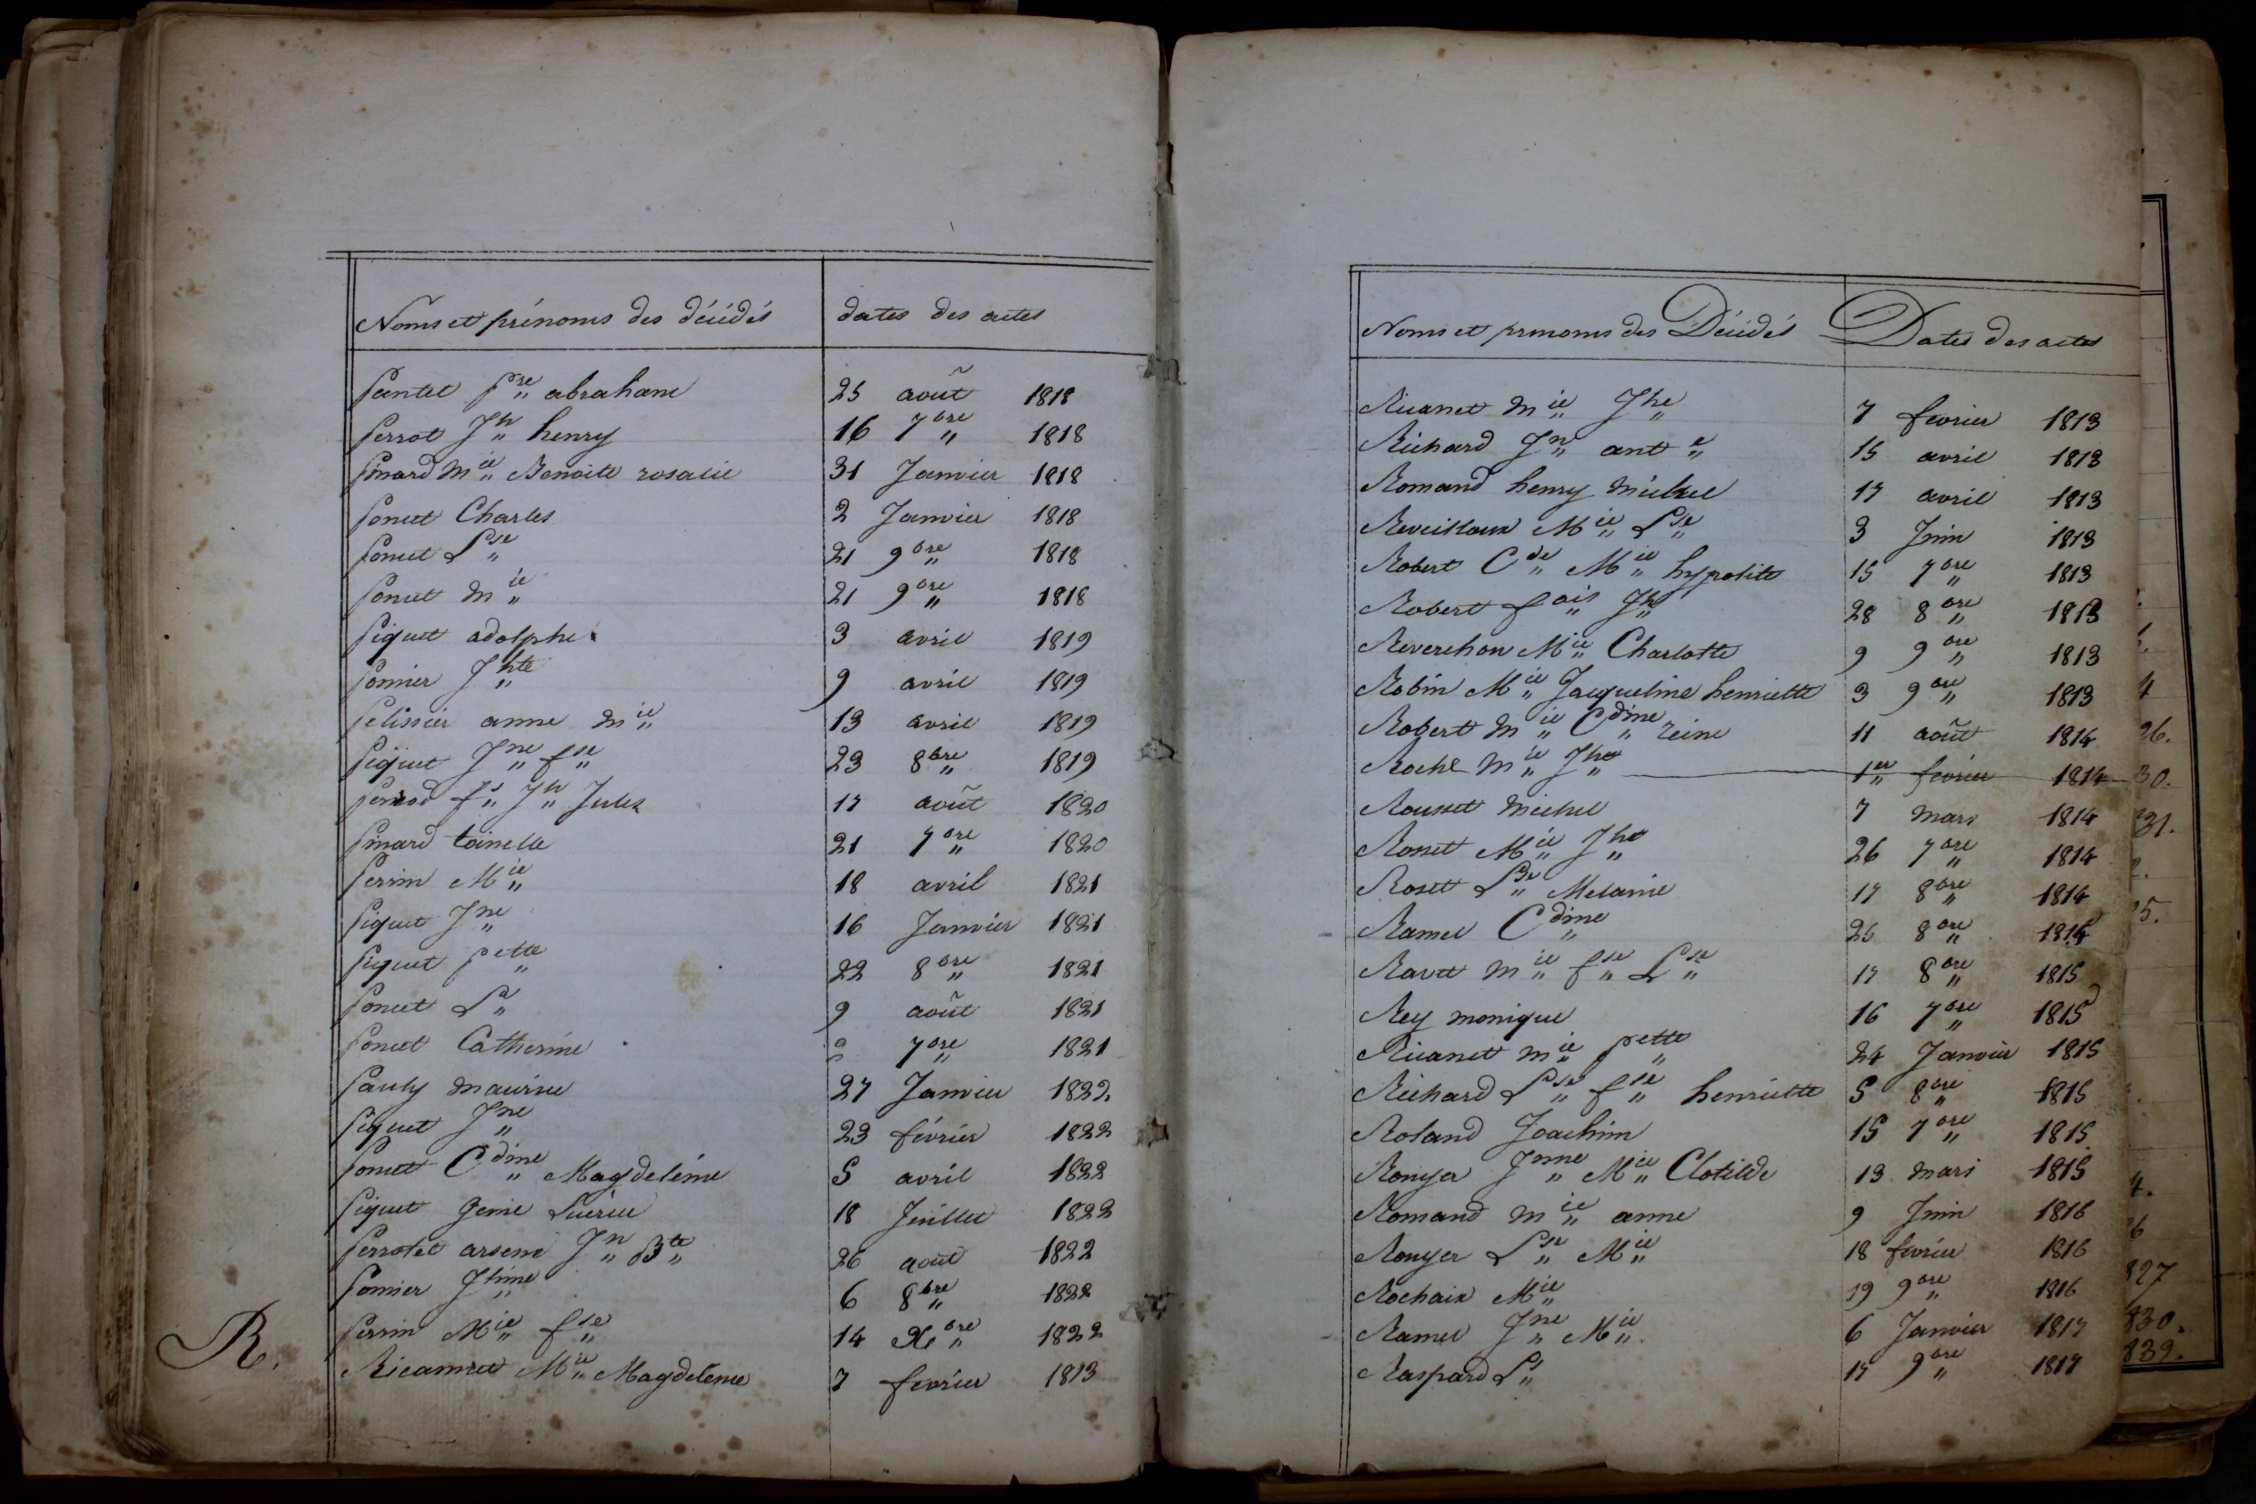 Noms et prénoms des décédés dates des actes
Pantet Pre abraham 25 août 1818
Perrot Jh henry 16 7bre 1818
Pinard Mie Benoite rosalie 31 Janvier 1818
Poncet Charles 2 Janvier 1818
Poncet Lse 21 9bre 1818
Poncet Mie 21 9bre 1818
Piquet adolphe 3 avril 1819
Ponier Jhte 9 avril 1819
Pelissier anne Mie 13 avril 1819
Piquet Jne fse 23 8bre 1819
fs Jh Jules 17 août 1820
Pinard toinette 21 7bre 1820
Perrin Mie 18 avril 1821
Piquet Jne 16 Janvier 1821
Piquet Pette 22 8bre 1821
Poncet Ls 9 août 1821
Poncet Catherine 7bre 1821
Pauly maurice 27 Janvier 1822
Piquet Jne 23 février 1822
Poncet Cdine Magdeleine 5 avril 1822
Piquet Genie 18 Juillet 1822
Perrotet arsene Jn Bte 26 août 1822
Ponier Jhine 6 8bre 1822
Perrin Mie fse 14 Xbre 1822
R.
Ricannet Mie Magdeleine 7 fevrier 1813
Noms et prenoms des Décédés Dates des actes
Ricanet Mie Jhe 7 fevrier 1813
Richard Jn ante 15 avril 1813
Romand henry michel 17 avril 1813
Reveilloux Mie Lse 3 Juin 1813
Robert Cde Mie hypolite 15 7bre 1813
Robert fois Jh 28 8bre 1813
Reverchon Mie Charlotte 9 9bre 1813
Robin Mie Jacqueline henriette 3 9bre 1813
Robert Mie Cdine reine 11 août 1814
Roche Mie Jhe 1er fevrier 1814
Rousset Michel 7 mars 1814
Rosset Mie Jhe 26 7bre 1814
Roset Lse Melanie 17 8bre 1814
Ramel Cdine 26 8bre 1814
Ravet Mie fse Lse 17 8bre 1815
Rey monique 16 7bre 1815
Ricanet Mie Pette 24 Janvier 1815
Richard Lse fse henriette 5 8bre 1815
Roland Joachim 15 7bre 1815
Ronyer Jnne Mie Clotilde 13 mars 1815
Romand Mie anne 9 Juin 1816
Ronyer Lse Mie 18 fevrier 1816
Rochaix Mie 19 9bre 1816
Ramel Jne Mie 6 Janvier 1817
Raspard Ls 17 9bre 1817
4
26.
30.
31.
25.
4.
827
830.
839.